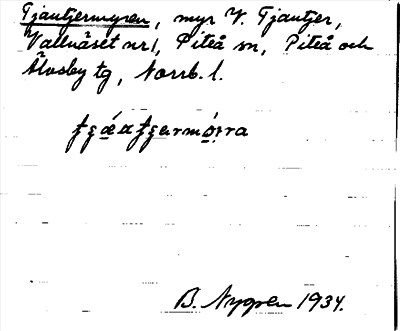 Tjautjermyren, myr V. Tjautjer,
Vallnäset nr 1, Piteå sn, Piteå och
Älvsby tg, Norrb. l.
B. Nygren 1934.